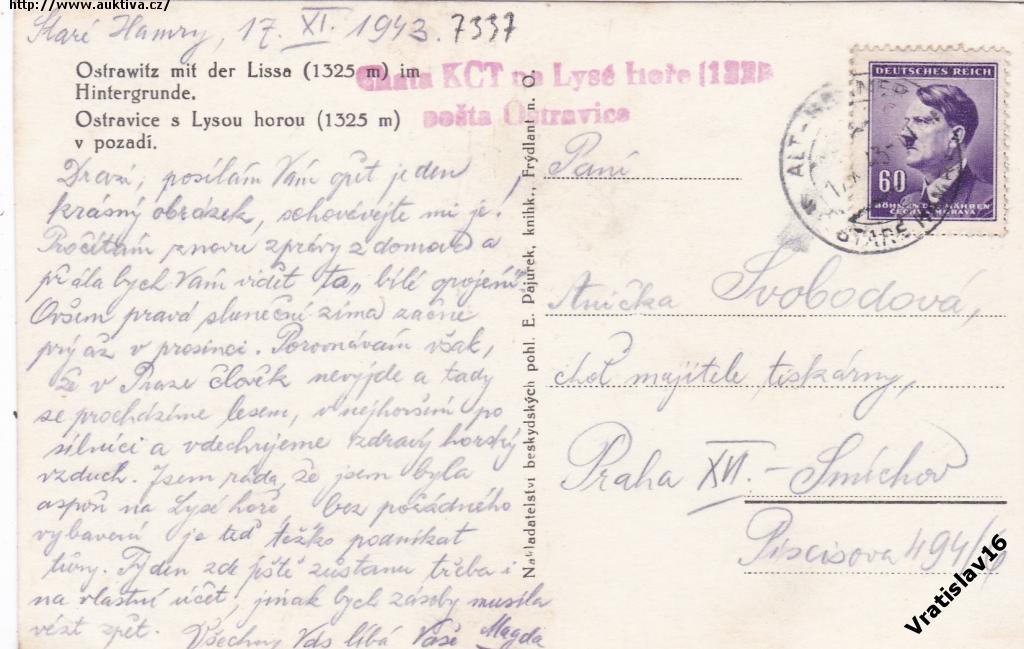 http://www.auktiva.cz/
Staré Hamry, 17. XI. 1943. 7337
Ostrawitz mit der Lissa (1325 m) im
Hintergrunde.
Ostravice s Lysou horou (1325 m)
v pozadí.
Chata KČT na Lysé hoře
pošta Ostravice
Drazí, posílám Vám opět jeden
krásný obrázek, schovávejte mi je!
Pročítám znovu zprávy z domova a
přála bych Vám vidět ta „bílé opojení“.
Ovšem pravá sluneční zima začne
prý až v prosinci. Porovnávám však,
že v Praze člověk nevyjde a tady
se procházíme lesem, v nejhorším po
silnici a vdechujeme zdravý horský
vzduch. Jsem ráda, že jsem byla
aspoň na Lysé hoře, bez pořádného
vybavení je teď těžko podnikat
túry. Týden zde ještě zůstanu třeba i
na vlastní účet, jinak bych zásoby musila
vézt zpět. Všechny Vás líbá Vaše Magda
Nakladatelství beskydských pohl. E. Pajurek, knihk., Frýdlant n. O.
DEUTSCHES REICH
60
BÖHMEN UND MÄHREN
ČECHY A MORAVA
STARÉ HAMRY
Paní
Anička Svobodová,
choť majitele tiskárny,
Praha XVI. – Smíchov
Piscisova 494/
Vratislav16